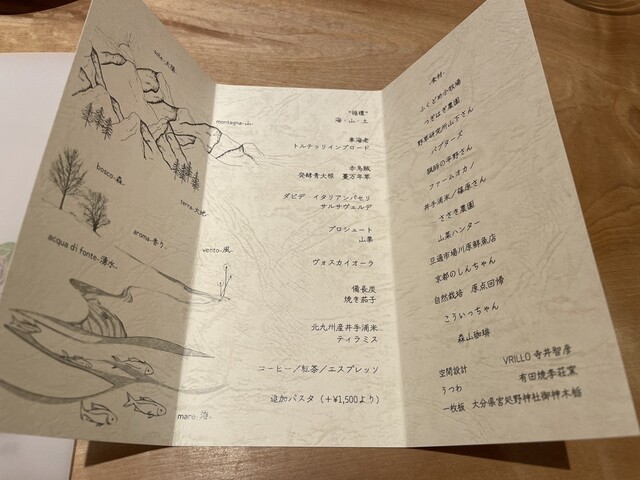 sole-太陽-
montagna-山-
bosco-森-
terra-大地
aroma-香り-
vento-風-
acqua di fonte-湧水-
mare-海-
"循環"
海・山・土
車海老
トルテッリインブロード
赤烏賊
発酵青大根 蔓万年草
ダビデ イタリアンパセリ
サルサヴェルデ
プロシュート
山栗
ヴォスカイオーラ
備長炭
焼き茄子
北九州産井手浦米
ティラミス
コーヒー/紅茶/エスプレッソ
追加パスタ(+¥1,500より)
-素材-
ふくどめ小牧場
つぎはぎ農園
野草研究所山下さん
バブターズ
猟師の平野さん
ファームオカノ
井手浦米/篠原さん
ささき農園
山菜ハンター
旦過市場川原鮮魚店
京都のしんちゃん
自然栽培 原点回帰
こういっちゃん
森山珈琲
空間設計 VRILLO 寺井智彦
うつわ 有田焼李荘窯
一枚板 大分県宮処野神社御神木栃